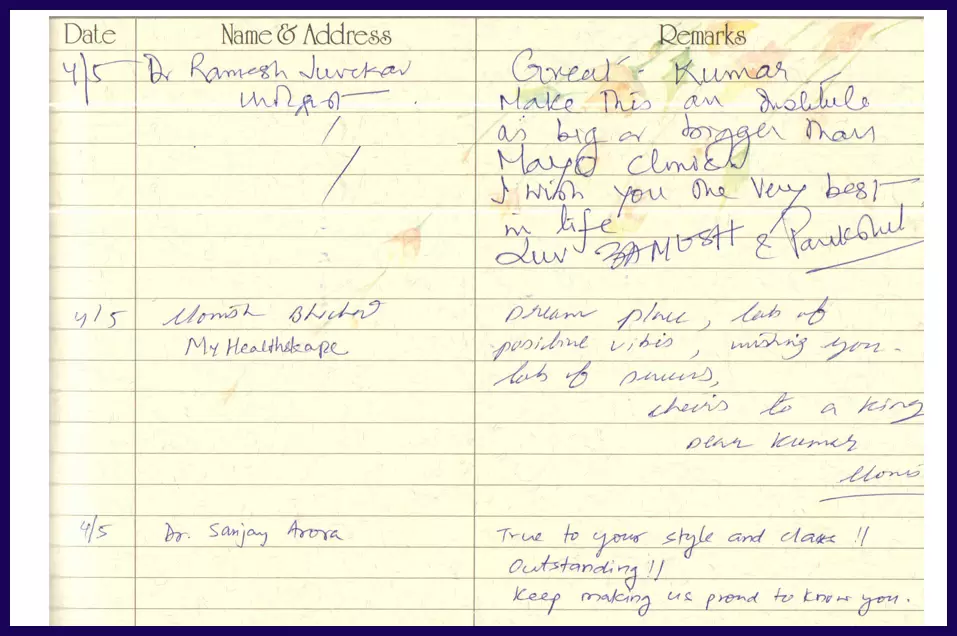 Date Name & Address Remarks
4/5 Dr Ramesh Great - Kumar
Make This an Institute
as big or bigger than
Mayo Clinick
I wish you the very best
in life
Luv RAMESH &
4/5 Monish Dream place, lots of
My Healthskape positive vibes, wishing you
lots of success,
cheers to a King
Dear Kumar
Monis
4/5 Dr. Sanjay Arora True to your style and class !!
Outstanding !!
Keep making us proud to know you.